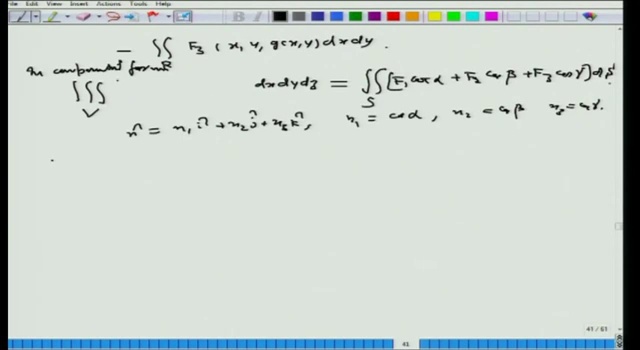 View Insert Actions Tools Help
− ∬ F₃ (x, y, g(x,y)) dx dy.
In component form R
∭ dx dy dz = ∬ [F₁ cos α + F₂ cos β + F₃ cos γ] dS
V S
n̂ = n₁ î + n₂ ĵ + n₃ k̂, n₁ = cos α, n₂ = cos β n₃ = cos γ.
41 / 61
41